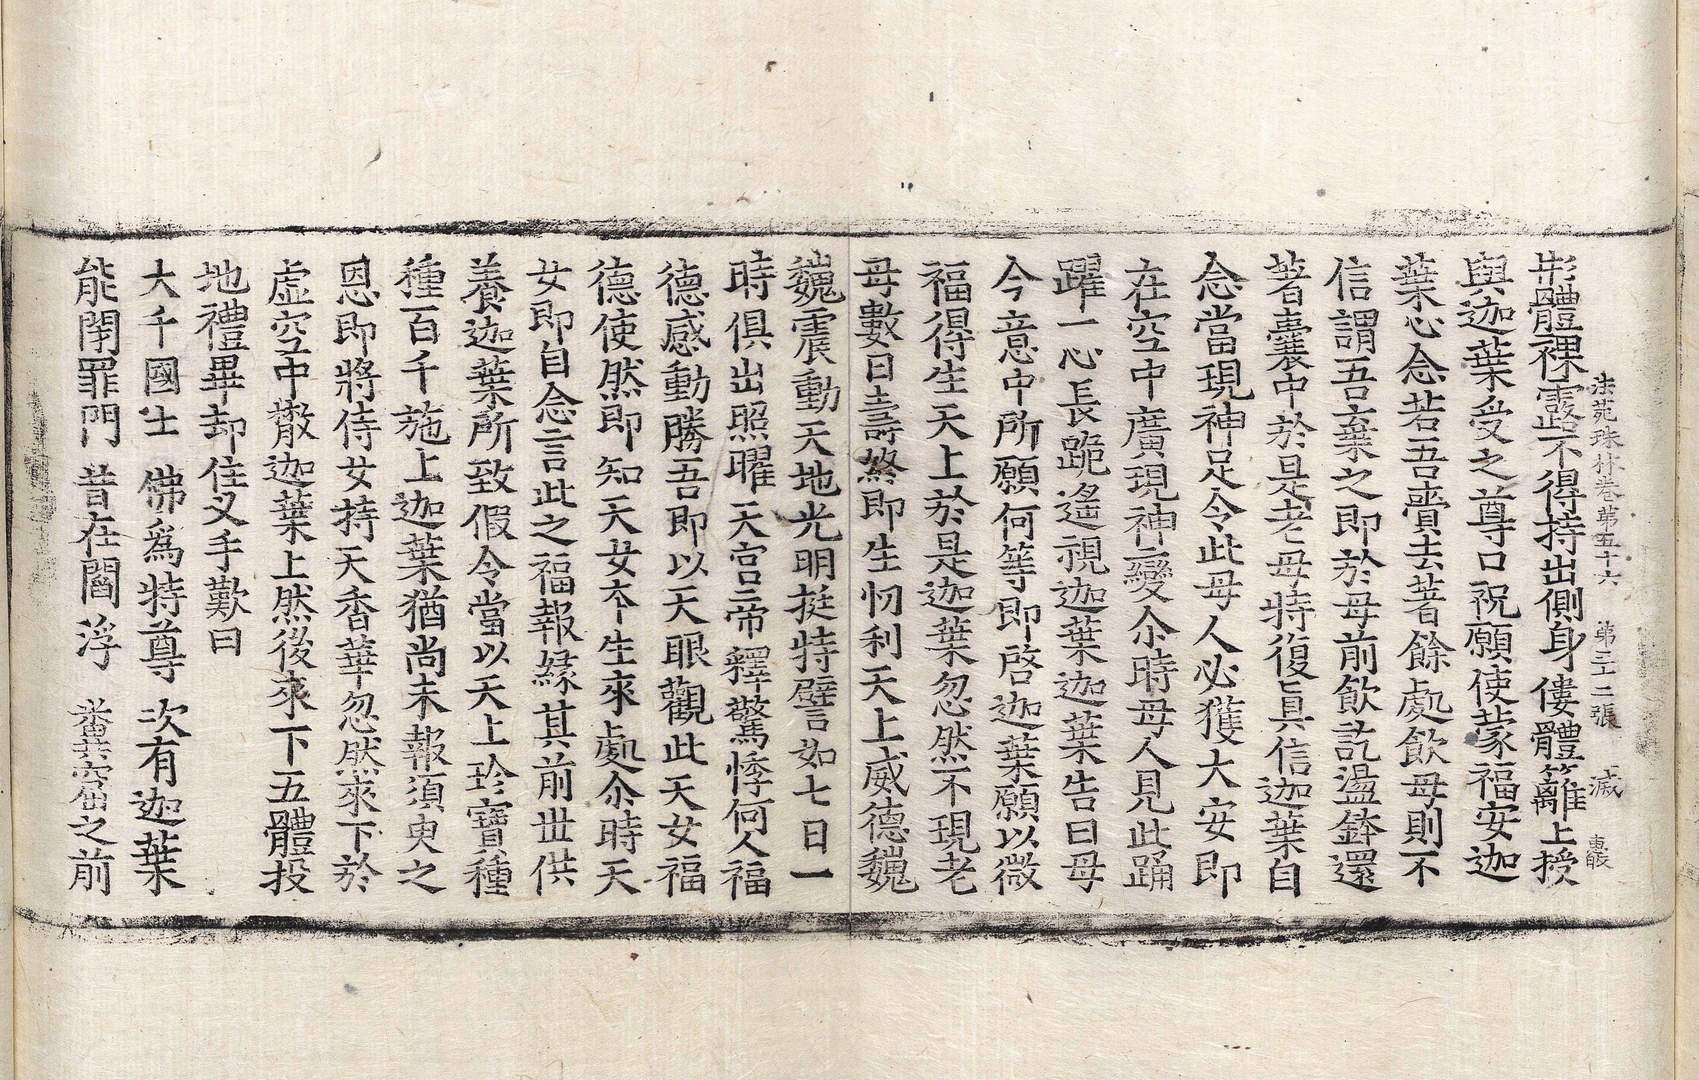 法苑珠林卷第五十六 第三十二張 減
形體裸露不得持出側身僂體籬上授
與迦葉受之尊口祝願使蒙福安迦
葉心念若吾賷去著餘處飲母則不
信謂吾棄之即於母前飲訖盪鉢還
著囊中於是老母特復真信迦葉自
念當現神足令此母人必獲大安即
在空中廣現神變尒時母人見此踊
躍一心長跪遙視迦葉迦葉告曰母
今意中所願何等即啓迦葉願以微
福得生天上於是迦葉忽然不現老
母數日壽終即生忉利天上威德巍
巍震動天地光明挺特譬如七日一
時俱出照曜天宮帝釋驚悸何人福
德感動勝吾即以天眼觀此天女福
德使然即知天女夲生來處尒時天
女即自念言此之福報緣其前世供
養迦葉所致假令當以天上珍寶種
種百千施上迦葉猶尚未報須臾之
恩即將侍女持天香華忽然來下於
虛空中散迦葉上然後來下五體投
地禮畢却住叉手歎曰
大千國土 佛爲特尊 次有迦葉
能閉罪門 昔在閻浮 糞窟之前